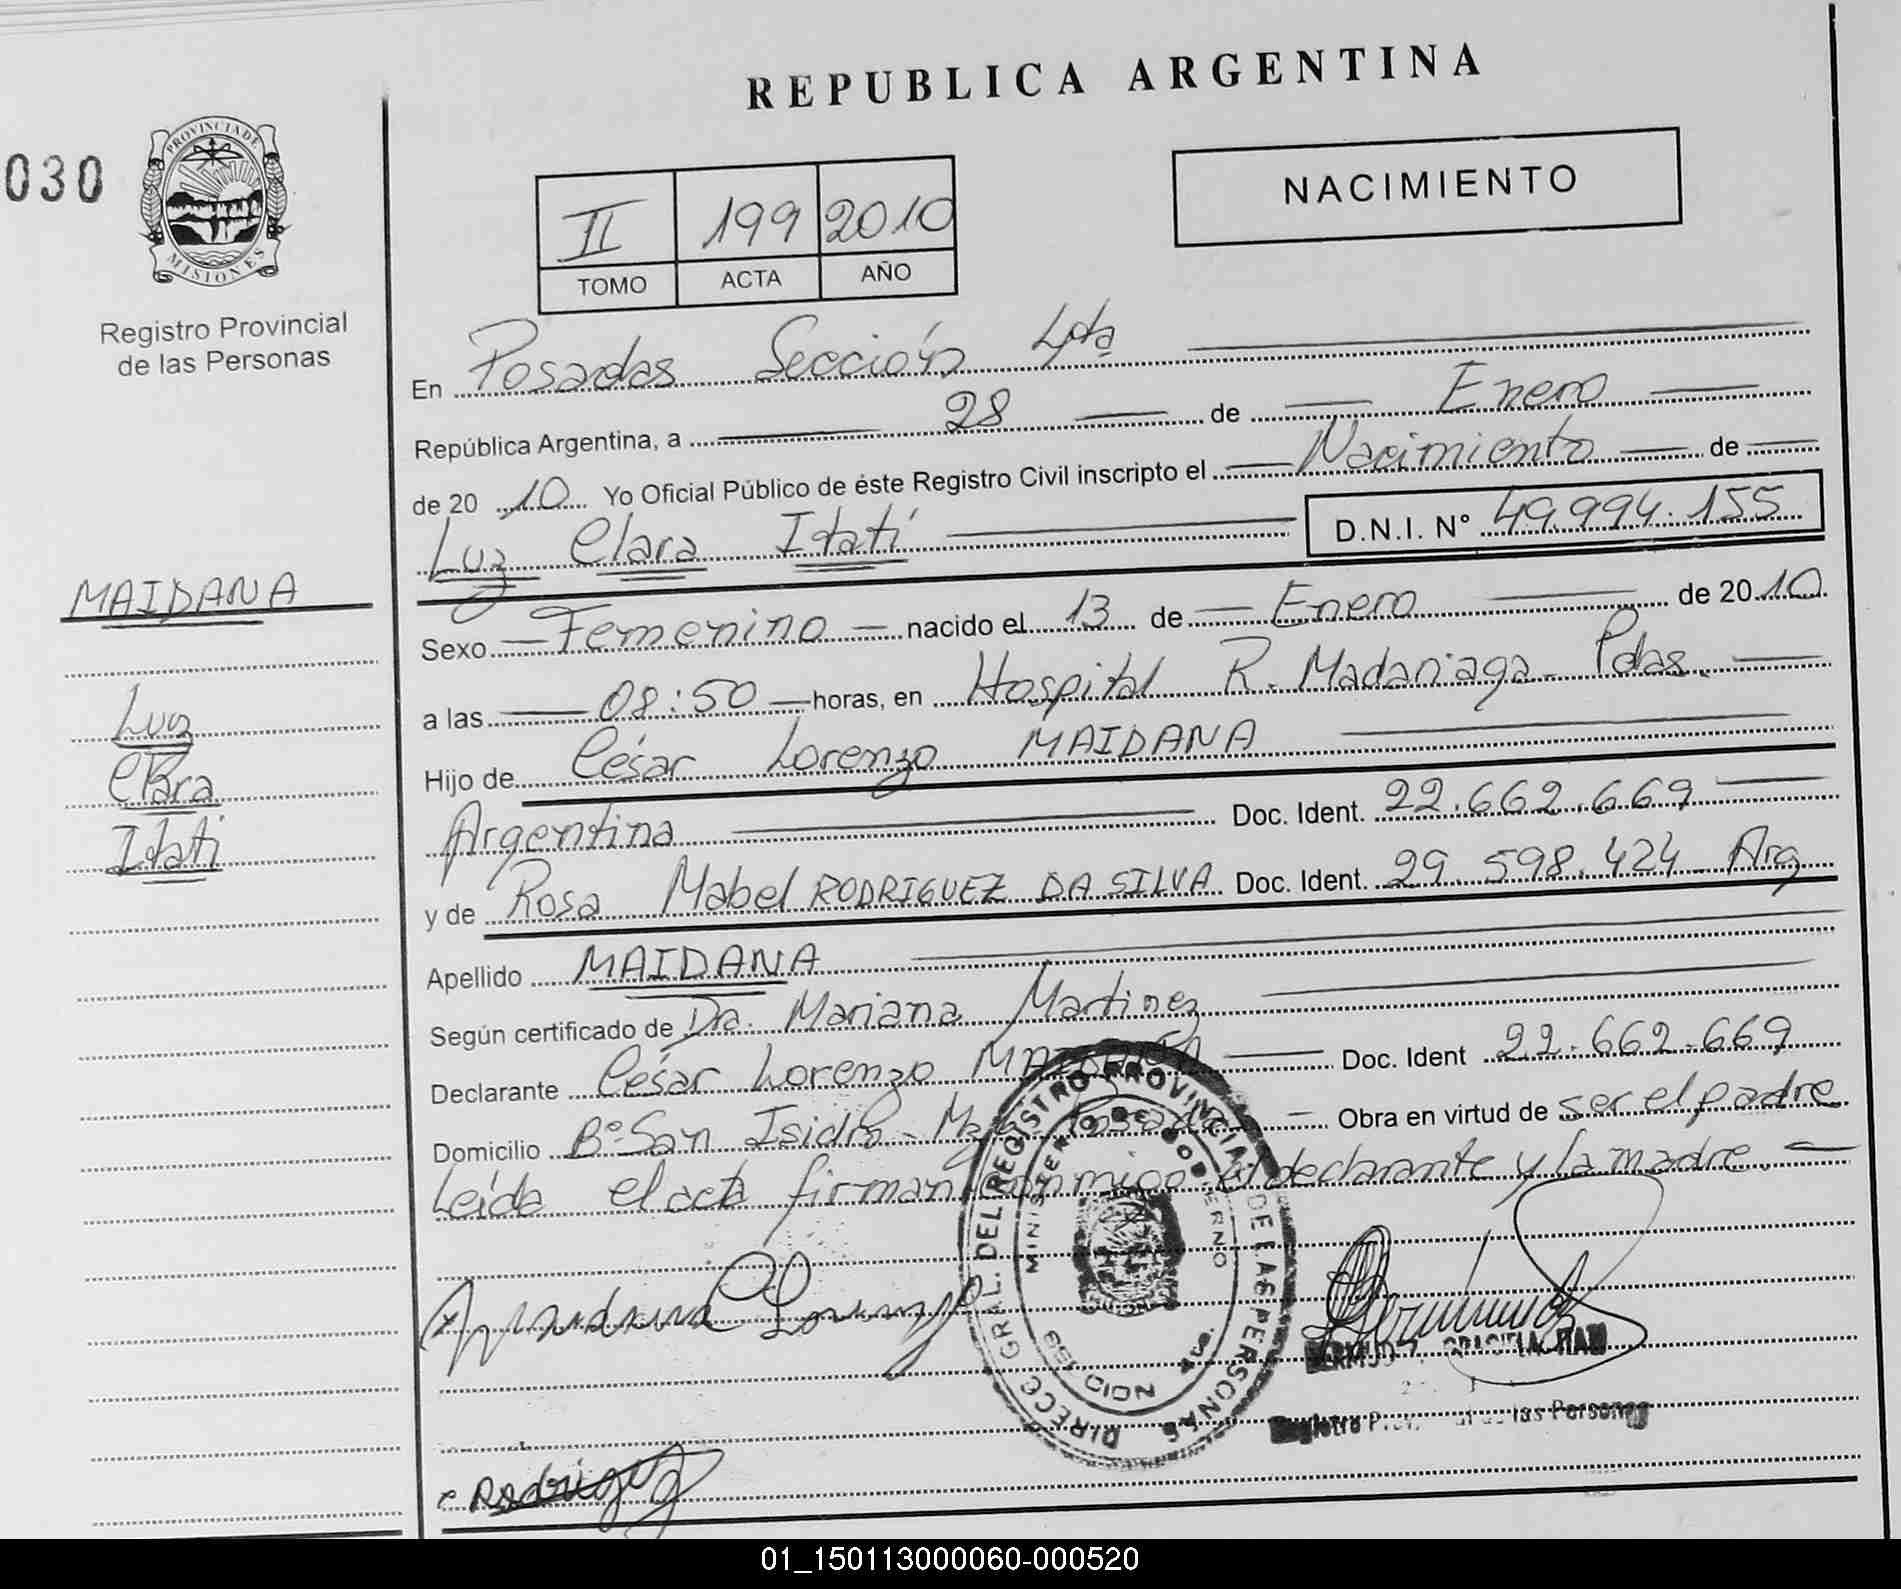 REPUBLICA ARGENTINA
030
PROVINCIA DE
MISIONES
Registro Provincial
de las Personas
NACIMIENTO
II 199 2010
TOMO ACTA AÑO
En Posadas Sección 4ta
República Argentina, a 28 de Enero
de 20 10 Yo Oficial Público de éste Registro Civil inscripto el Nacimiento de
Luz Clara Itatí D.N.I. N° 49.994.155
MAIDANA
Luz
Clara
Itatí
Sexo Femenino nacido el 13 de Enero de 2010
a las 08:50 horas, en Hospital R. Madariaga - Pdas.
Hijo de César Lorenzo MAIDANA
Argentina Doc. Ident. 22.662.669
y de Rosa Mabel RODRIGUEZ DA SILVA Doc. Ident. 29.598.424 Arg
Apellido MAIDANA
Según certificado de Dra. Mariana Martinez
Declarante César Lorenzo MAIDANA Doc. Ident 22.662.669
Domicilio B° San Isidro - Posadas Obra en virtud de ser el padre
Leída el acta firman conmigo el declarante y la madre.
DIRECC. GRAL. DEL REGISTRO PROVINCIAL DE LAS PERSONAS
MINISTERIO DE GOBIERNO
Maidana Lorenzo
GRACIELA
Registro Provincial de las Personas
Rodriguez
01_150113000060-000520